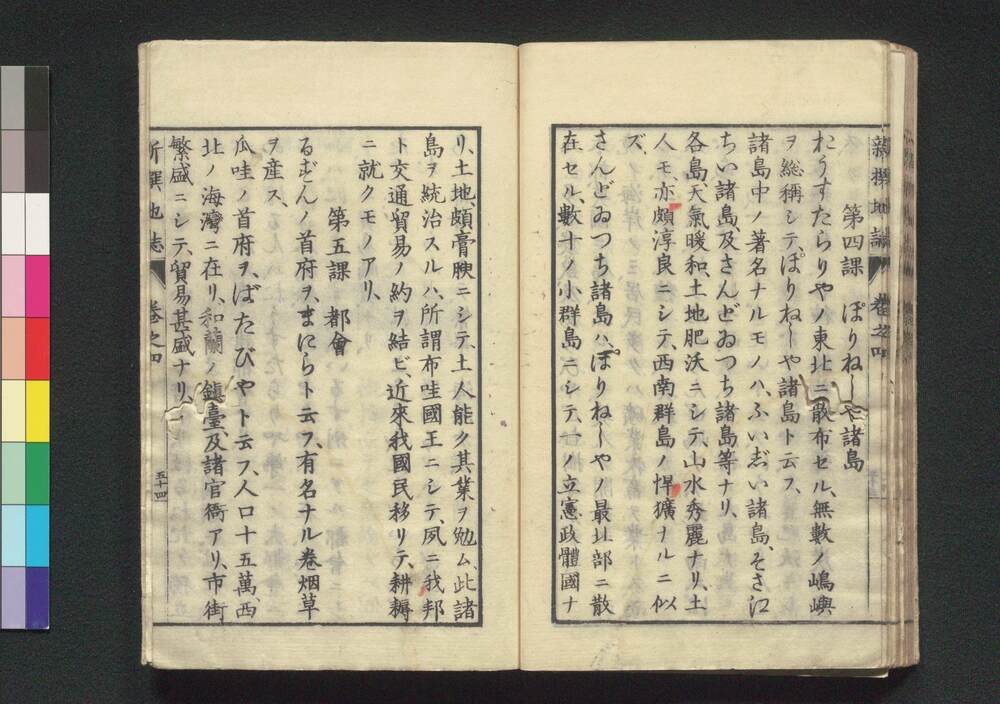 新撰地誌 巻之四
第四課 ぽりねしや諸島
おうすたらりやノ東北ニ散布セル、無數ノ嶋嶼
ヲ総稱シテ、ぽりねしや諸島ト云フ、
諸島中ノ著名ナルモノハ、ふいぢい諸島、そさ江
ちい諸島、及さんどゐつち諸島等ナリ、
各島天氣暖和、土地肥沃ニシテ、山水秀麗ナリ、土
人モ亦頗淳良ニシテ、西南群島ノ悍獷ナルニ似
ズ、
さんどゐつち諸島ハ、ぽりねしやノ最北部ニ散
在セル、數十ノ小群島ニシテ、一ノ立憲政體國ナ
リ、土地、頗膏腴ニシテ、土人能ク其業ヲ勉ム、此諸
島ヲ統治スルハ、所謂布哇國王ニシテ、夙ニ我邦
ト交通貿易ノ約ヲ結ビ、近來我國民移リテ、耕耨
ニ就クモノアリ、
第五課 都會
るぞんノ首府ヲ、まにらト云フ、有名ナル巻烟草
ヲ産ス、
瓜哇ノ首府ヲ、ばたびやト云フ、人口十五萬、西
北ノ海灣ニ在リ、和蘭ノ鎮臺、及諸官衙アリ、市街
繁盛ニシテ、貿易甚盛ナリ、
新撰地志 巻之四
五十四